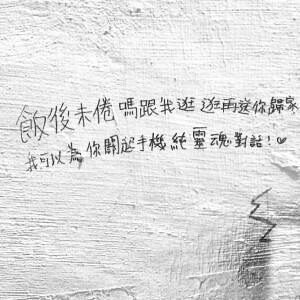 飯後未倦嗎跟我逛逛再送你歸家
我可以為你關起手機純靈魂對話！♥